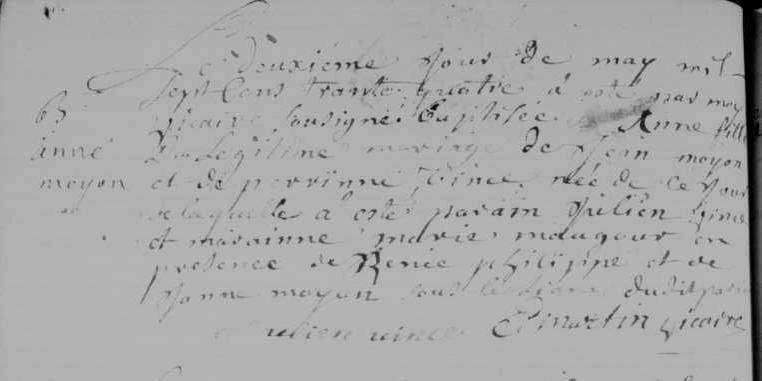 Le deuxiéme jour de may mil
sept cens trante quatre a esté par moy
B vicaire sousigné baptisée Anne fille
anne du Legitime mariage de Jean moyon
moyon et de perrinne Vince née de ce jour
de laquelle a esté parain Julien Vince
et marainne marie maugour en
presence de Renée philippe et de
Janne moyon sous le signe dudit parain
Julien vince C martin vicaire